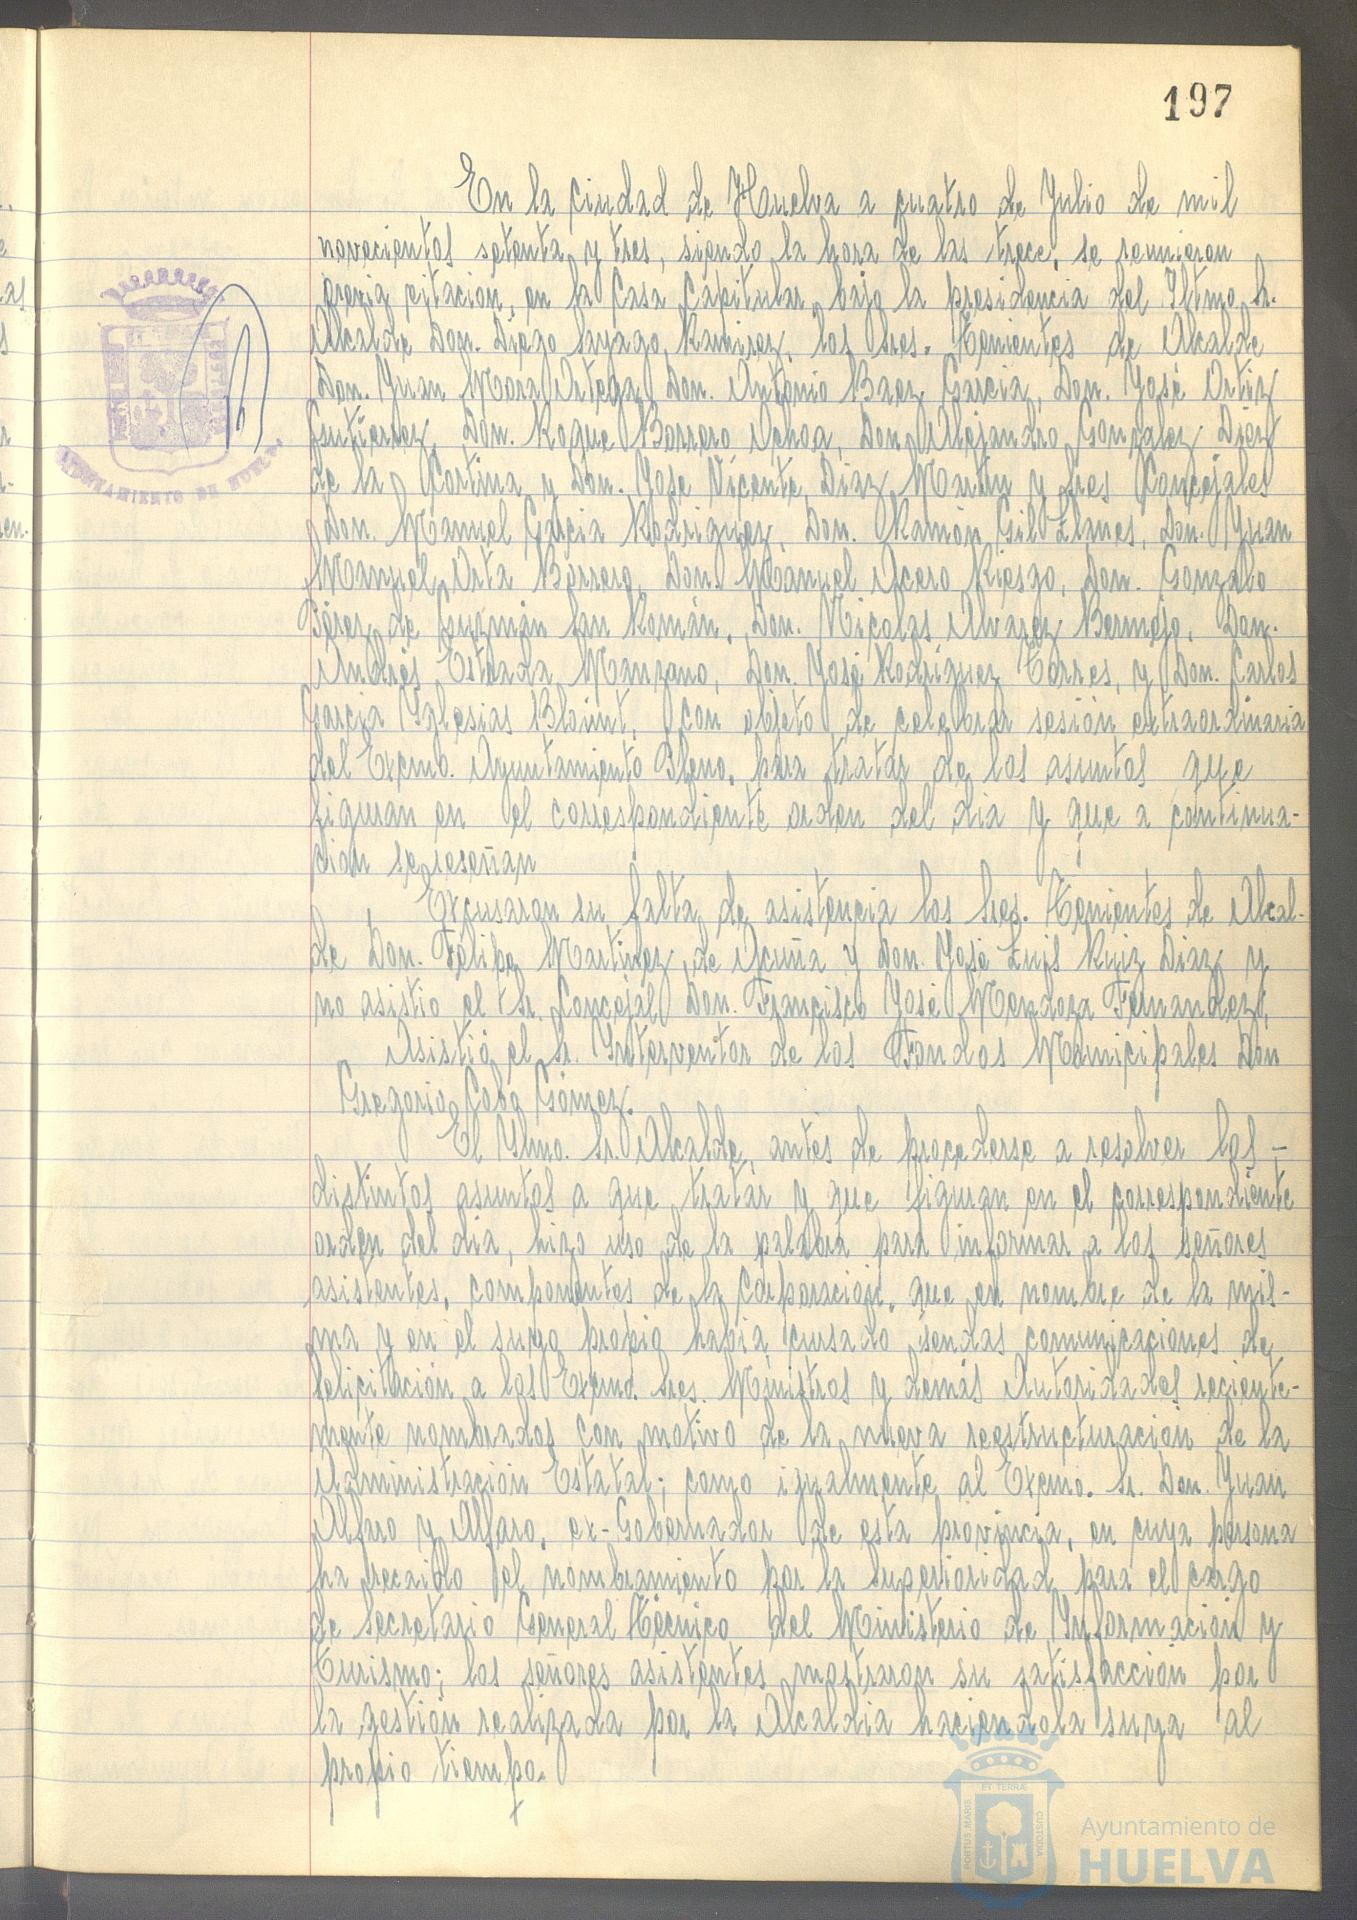 197
En la ciudad de Huelva a cuatro de Julio de mil
novecientos setenta y tres, siendo la hora de las trece, se reunieron
previa citacion, en la Casa Capitular bajo la presidencia del Iltmo. Sr.
Alcalde Don. Diego Sayago Ramirez, los Sres. Tenientes de Alcalde
Don. Juan Mora Ortega, Don. Antonio Baez Garcia, Don. José Ortiz
Gutierrez, Don. Roque Barrero Ochoa, Don Alejandro Gonzalez Diez
de la Cortina y Don. José Vicente Diaz Martin y Sres Concejales
Don. Manuel Garcia Rodriguez, Don. Ramón Gil Llanes, Don. Juan
Manuel Orta Borrero, Don. Manuel Acero Riesgo, Don. Gonzalo
Pérez de Guzmán San Román, Don. Nicolas Alvarez Bermejo, Don.
Andrés Estrada Manzano, Don. José Rodriguez Torres, y Don. Carlos
Garcia Yglesias Blount, con objeto de celebrar sesión extraordinaria
del Excmo. Ayuntamiento Pleno, para tratar de los asuntos que
figuran en el correspondiente orden del dia y que a continua-
cion se reseñan
Excusaron su falta de asistencia los Sres. Tenientes de Alcal-
de Don. Felipe Martinez de Acuña y Don. José Luis Ruiz Diaz y
no asistio el Sr. Concejal Don. Francisco José Mendoza Fernandez,
Asistió el Sr. Interventor de los Fondos Municipales Don
Gregorio Cobo Gómez.
El Ylmo. Sr. Alcalde, antes de procederse a resolver los -
distintos asuntos a que tratar y que figuran en el correspondiente
orden del dia, hizo uso de la palabra para informar a los señores
asistentes, componentes de la Corporación, que en nombre de la mis-
ma y en el suyo propio habia cursado sendas comunicaciones de
felicitación a los Excmo. Sres. Ministros y demás Autoridades reciente-
mente nombrados con motivo de la nueva reestructuración de la
Administración Estatal; como igualmente al Excmo. Sr. Don. Juan
Alfaro y Alfaro, ex-Gobernador de esta provincia, en cuya persona
ha recaido el nombramiento por la Superioridad para el cargo
de Secretario General Técnico del Ministerio de Información y
Turismo; los señores asistentes mostraron su satisfacción por
la gestión realizada por la Alcaldia haciendola suya al
propio tiempo.
AYUNTAMIENTO DE HUELVA
PORTUS MARIS ET TERRÆ CUSTODIA
Ayuntamiento de
HUELVA